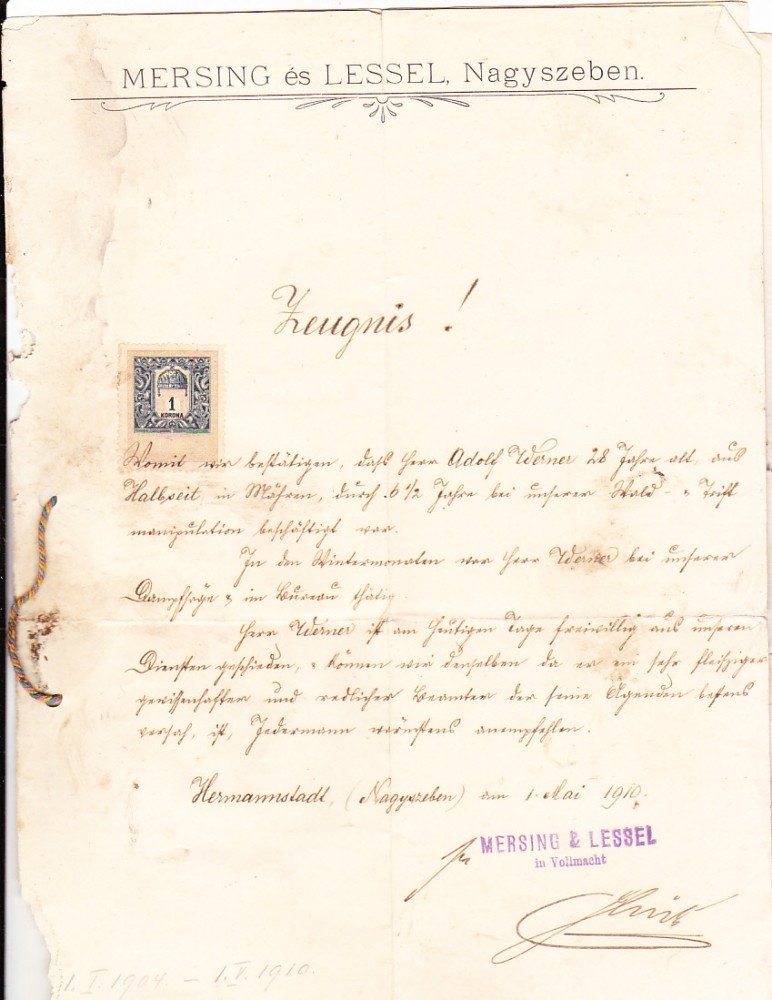 MERSING és LESSEL, Nagyszeben.
Zeugnis !
1
KORONA
Womit wir bestätigen, dass Herr Adolf Werner 28 Jahre alt, aus
Halbseit, in Mähren, durch 6 1/2 Jahre bei unserer Wald- & Trift
manipulation beschäftigt war.
In den Wintermonaten war Herr Werner bei unserer
Dampfsäge & im Bureau thätig.
Herr Werner ist am heutigen Tage freiwillig aus unseren
Diensten geschieden, & können wir denselben da er ein sehr fleissiger
gewissenhafter und redlicher Beamter der seine Agenden bestens
versah, ist, Jedermann wärmstens anempfehlen.
Hermannstadt, (Nagyszeben) am 1. Mai 1910.
MERSING & LESSEL
in Vollmacht
1. I. 1904 – 1. V. 1910.